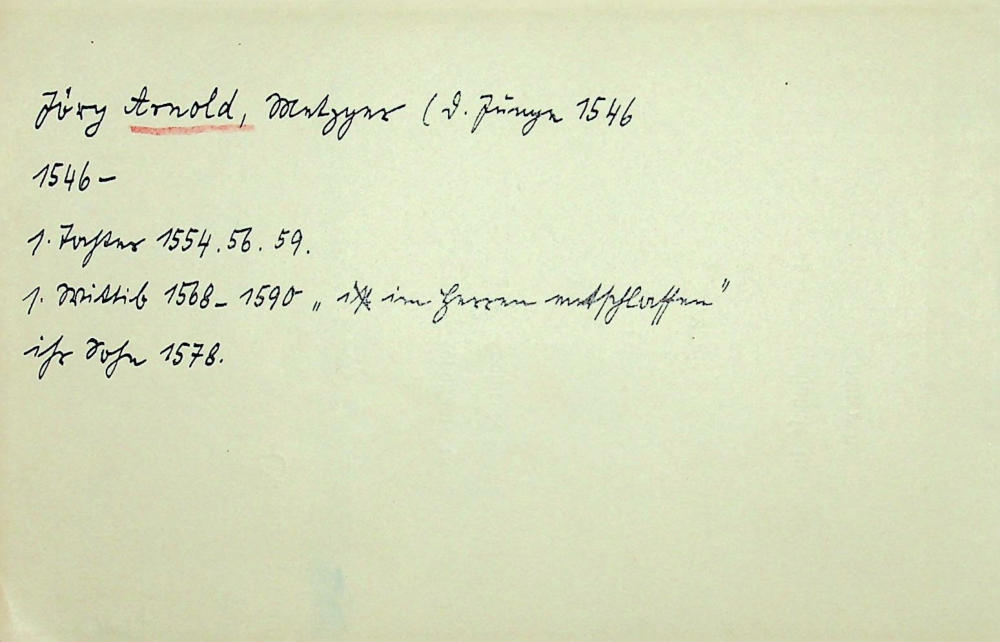 Jörg Arnold, Metzger (d. Junge 1546
1546–
1. Tochter 1554. 56. 59.
1. Wittib 1568– 1590 „ ist im Herren entschlaffen"
ihr Sohn 1578.